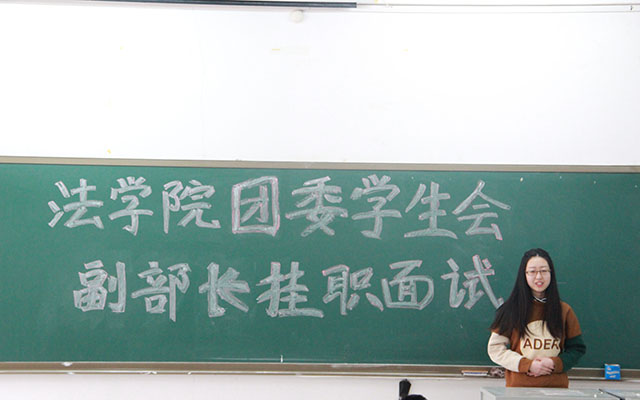 法学院团委学生会
副部长挂职面试
ADER